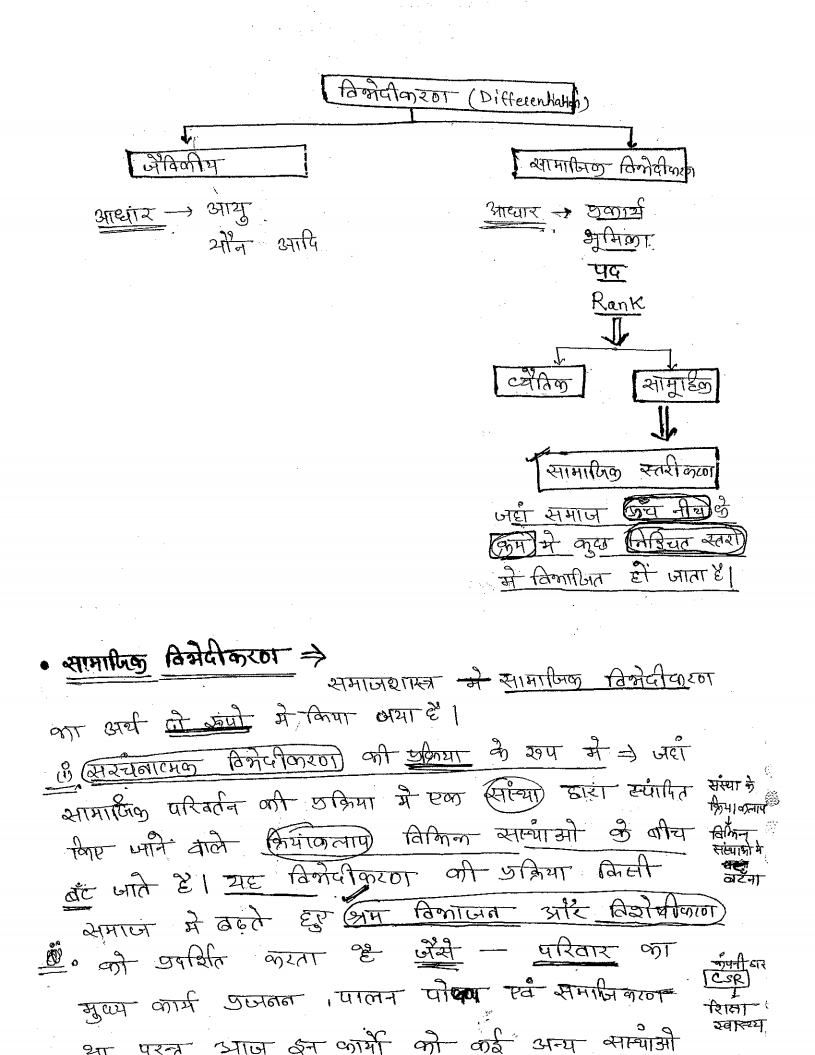 विभेदीकरण (Differentiation)
जैविकीय
सामाजिक विभेदीकरण
आधार → आयु
यौन आदि
आधार → प्रकार्य
भूमिका
पद
Rank
वैयैतिक
सामूहिक
सामाजिक स्तरीकरण
जहां समाज ऊँच नीच के
क्रम में कुछ निश्चित स्तरो
में विभाजित हो जाता है|
• सामाजिक विभेदीकरण ⇒
समाजशास्त्र में सामाजिक विभेदीकरण
का अर्थ दो रूपो में किया गया है|
(i) सरंचनात्मक विभेदीकरण की प्रक्रिया के रूप में ⇒ जहां
सामाजिक परिवर्तन की प्रक्रिया में एक संस्था द्वारा स्थापित
किए जाने वाले क्रियाकलाप विभिन्न संस्थाओ के बीच
बँट जाते है| यह विभेदीकरण की प्रक्रिया किसी
समाज में बढ़ते हुए श्रम विभाजन और विशेषीकरण
को प्रदर्शित करता है जैसे – परिवार का
मुख्य कार्य प्रजनन, पालन पोषण एवं समाजिकरण
था परन्तु आज इन कार्यो को कई अन्य संस्थाओ
संस्था के
क्रियाकलाप
विभिन्न
संस्थाओ मे
बटँना
कंपनी द्वार
CSR
शिक्षा
स्वास्थ्य